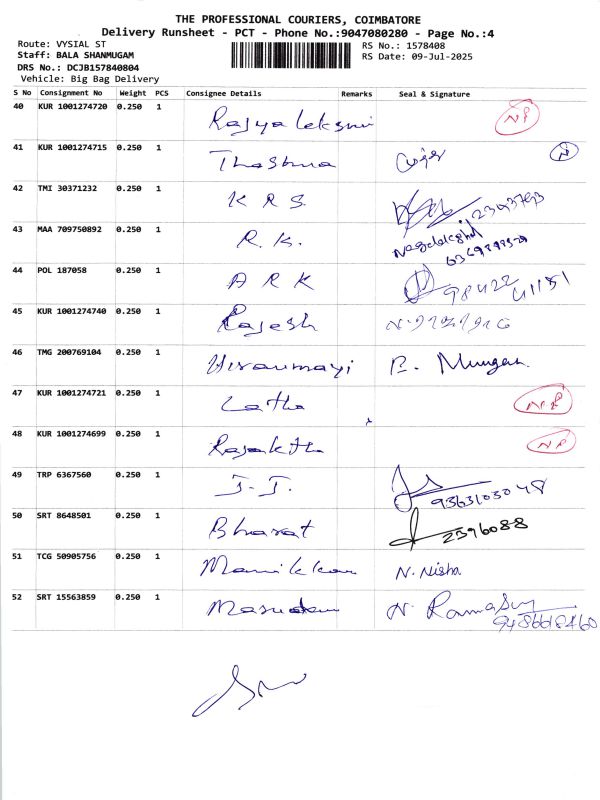 THE PROFESSIONAL COURIERS, COIMBATORE
Delivery Runsheet - PCT - Phone No.:9047080280 - Page No.:4
Route: VYSIAL ST RS No.: 1578408
Staff: BALA SHANMUGAM RS Date: 09-Jul-2025
DRS No.: DCJB157840804
Vehicle: Big Bag Delivery
S No Consignment No Weight PCS Consignee Details Remarks Seal & Signature
40 KUR 1001274720 0.250 1 Rajya lekshmi NP
41 KUR 1001274715 0.250 1
42 TMI 30371232 0.250 1 K R S
43 MAA 709750892 0.250 1 R.K.
44 POL 187058 0.250 1 A R K 98422 41151
45 KUR 1001274740 0.250 1 Rajesh
46 TMG 200769104 0.250 1 Hiranmayi P. Murugan.
47 KUR 1001274721 0.250 1 Latha NP
48 KUR 1001274699 0.250 1 NP
49 TRP 6367560 0.250 1 J.J. 9363103048
50 SRT 8648501 0.250 1 Bharat 2396088
51 TCG 50905756 0.250 1 N. Nisha
52 SRT 15563859 0.250 1 N. Ramasamy
9486618460